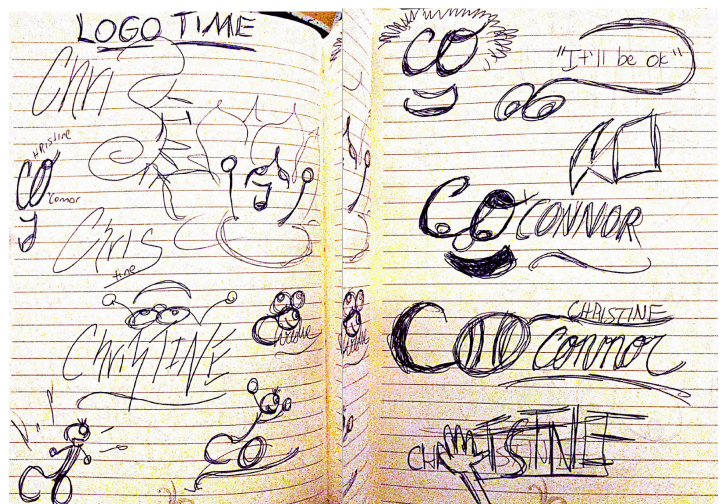 LOGO TIME
Chri
HRistine
CO
Connor
Chris
tine
CHRiSTINE
CO
CO
CO
"It'll be ok"
CO
CO'CONNOR
CHRISTINE
CO Connor
CHRISTINE